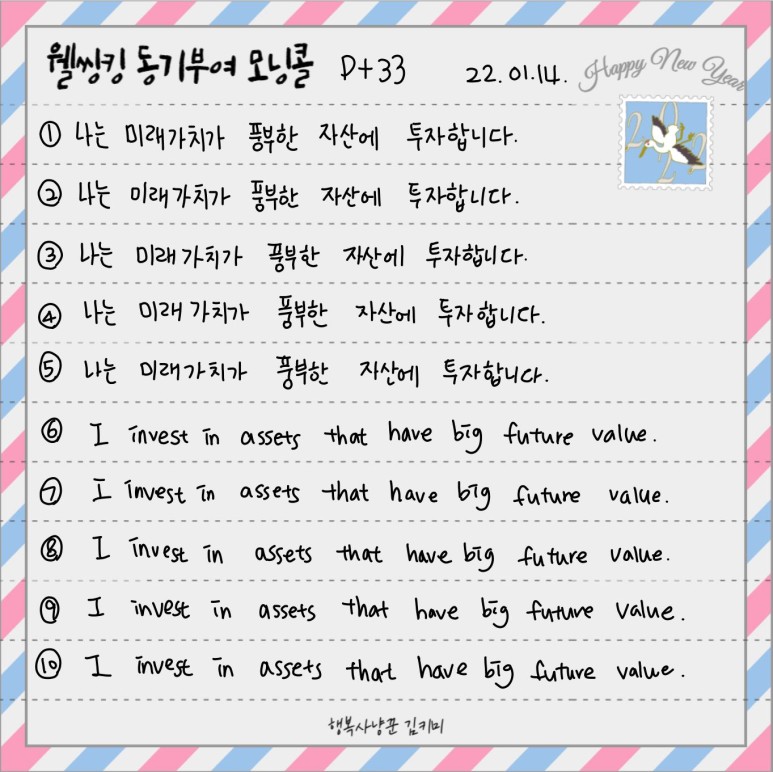 웰씽킹 동기부여 모닝콜 D+33 22.01.14. Happy New Year
2022
① 나는 미래가치가 풍부한 자산에 투자합니다.
② 나는 미래가치가 풍부한 자산에 투자합니다.
③ 나는 미래가치가 풍부한 자산에 투자합니다.
④ 나는 미래가치가 풍부한 자산에 투자합니다.
⑤ 나는 미래가치가 풍부한 자산에 투자합니다.
⑥ I invest in assets that have big future value.
⑦ I invest in assets that have big future value.
⑧ I invest in assets that have big future value.
⑨ I invest in assets that have big future value.
⑩ I invest in assets that have big future value.
행복사냥꾼 김키미